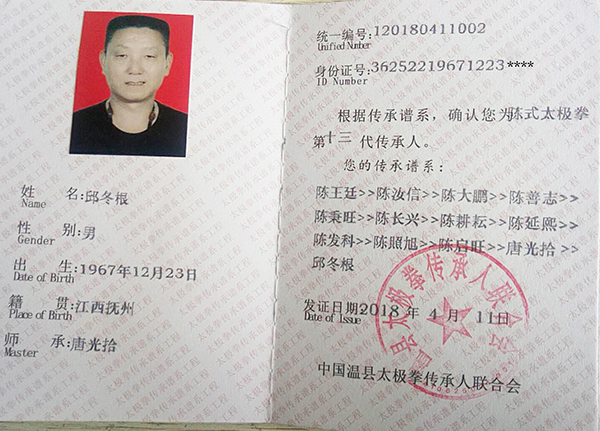 姓 名:邱冬根
Name
性 别:男
Gender
出 生:1967年12月23日
Date of Birth
籍 贯:江西抚州
Place of Birth
师 承:唐光拾
Master
统一编号:120180411002
Unified Number
身份证号:36252219671223****
ID Number
根据传承谱系，确认您为陈式太极拳
第十三 代传承人。
您的传承谱系:
陈王廷>>陈汝信>>陈大鹏>>陈善志>>
陈秉旺>>陈长兴>>陈耕耘>>陈延熙>>
陈发科>>陈照旭>>陈启旺>>唐光拾>>
邱冬根
发证日期:2018 年 4 月 11日
Date of Issue
中国温县太极拳传承人联合会